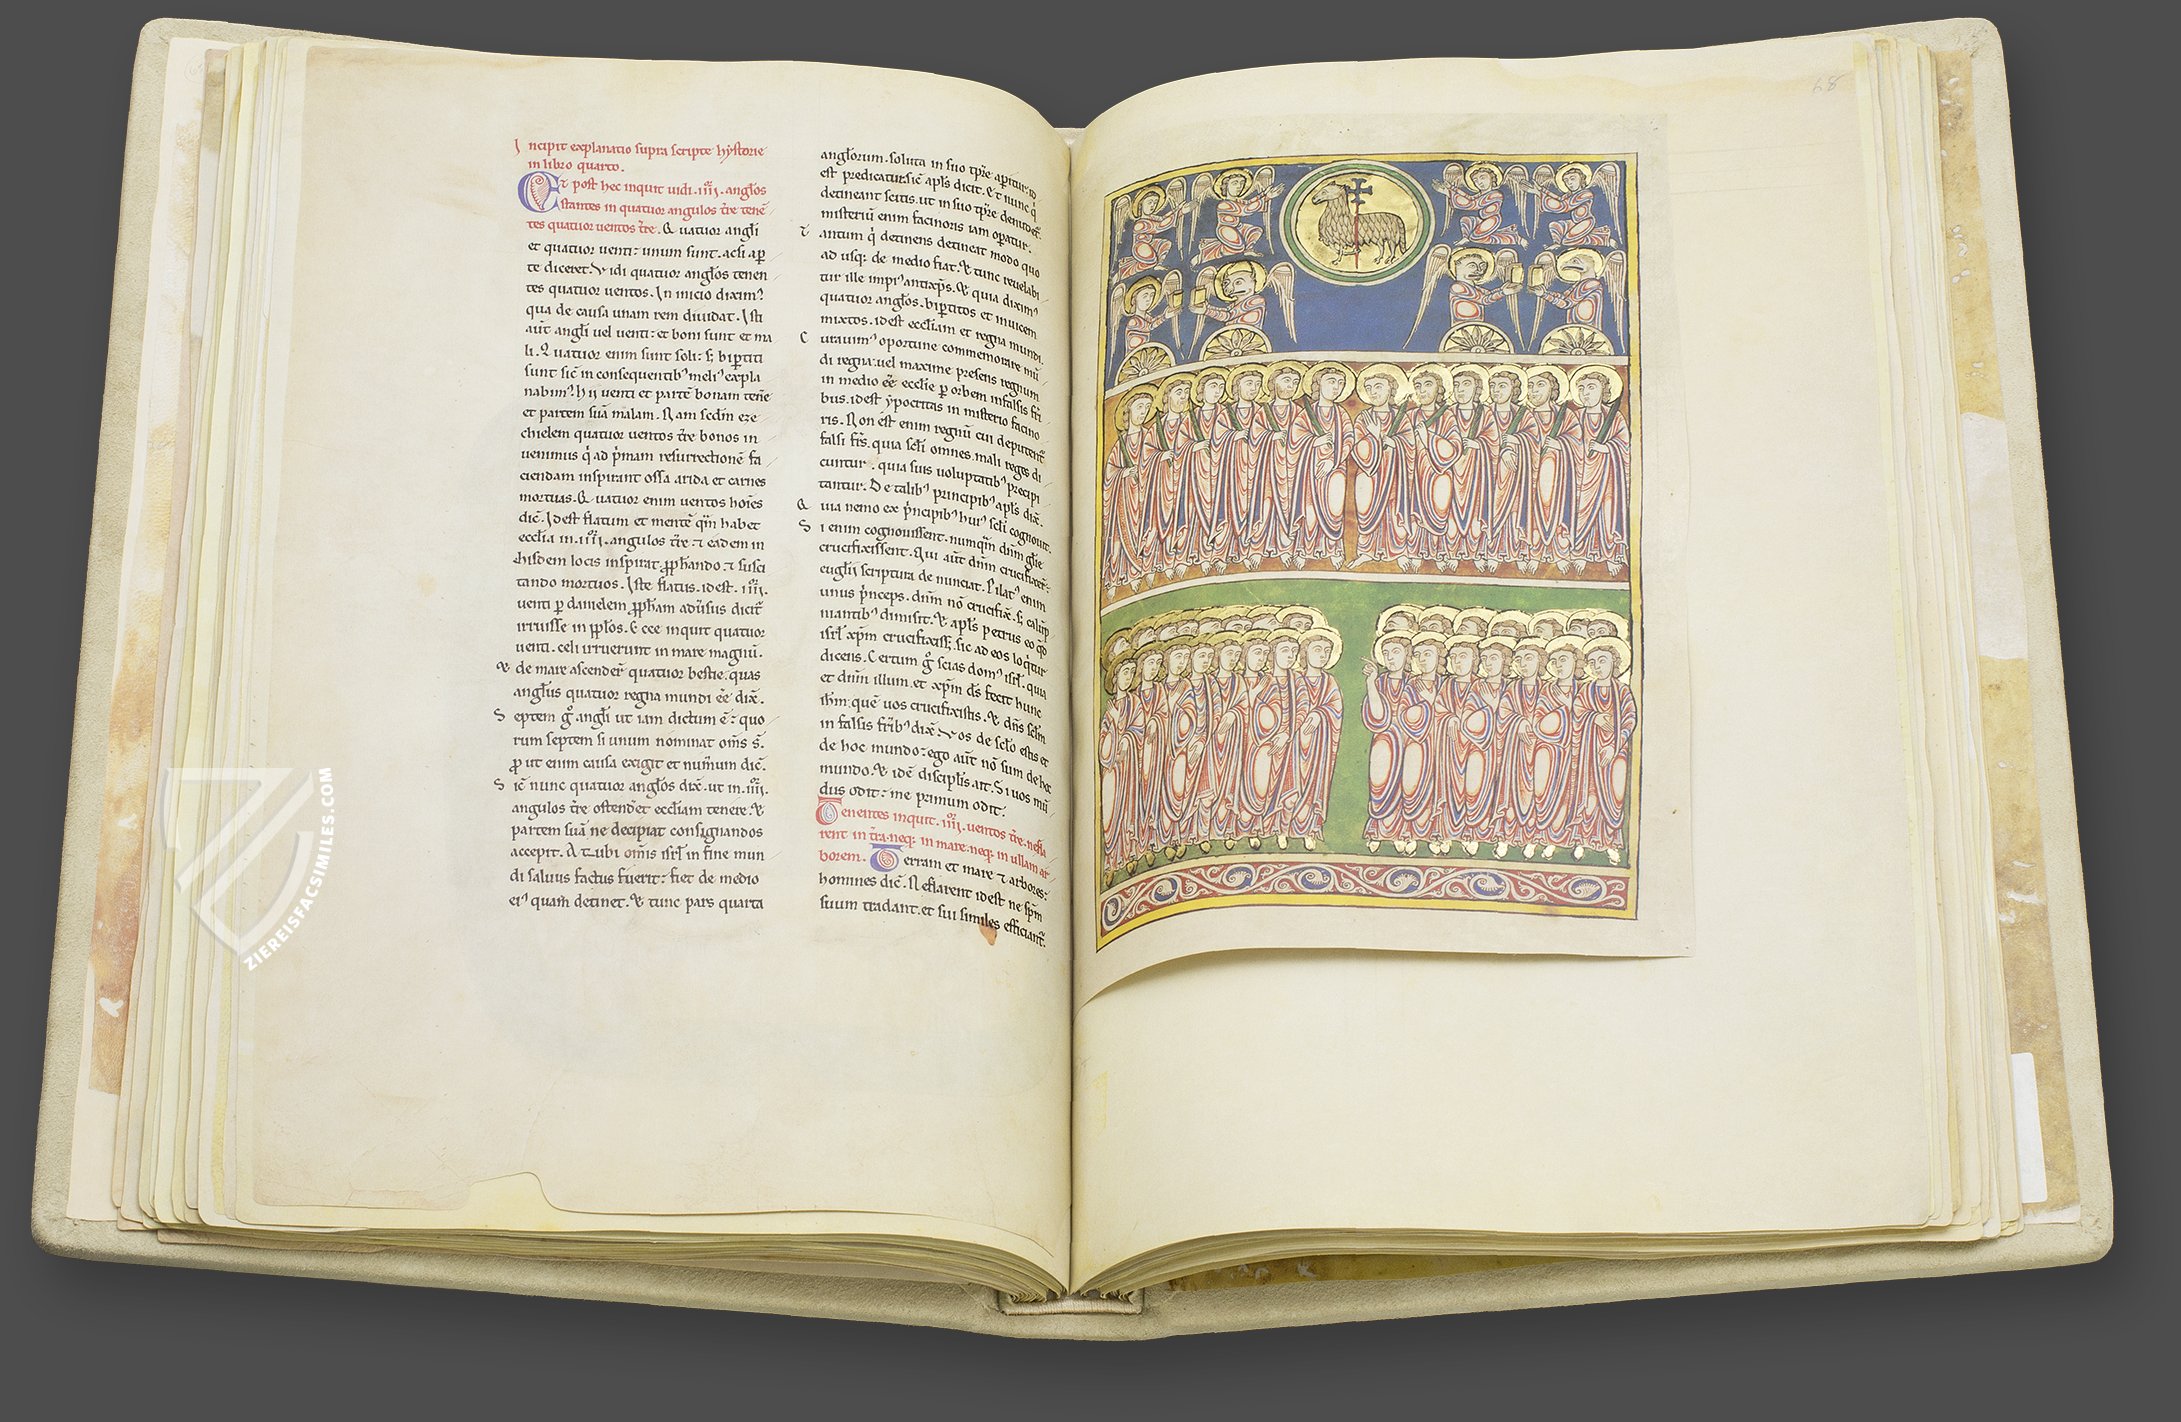 Incipit explanatio supra scripte hystorie
in libro quarto.
Et post hec inquit uidi .iiii. anglos
stantes in quatuor angulos tr̄e tenē
tes quatuor uentos tr̄e. Quatuor angl̄i
et quatuor uenti: unum sunt. acsi aꝑ
te diceret. Vidi quatuor anglōs tenen
tes quatuor uentos. In inicio diximꝰ
qua de causa unam rem diuidat. Isti
aūt angl̄i uel uenti: et boni sunt et ma
li. Quatuor enim sunt soli: s; bipti̅ti
sunt sic̄ in consequentibꝰ meliꝰ expla
nabimꝰ. hii uenti et partē bonam tenēt
et partem suā malam. Nam sedm eze
chielem quatuor uentos tr̄e bonos in
uenimus q̄ ad p̄mam resurrectionē fa
ciendam inspirant ossa arida et carnes
mortuas. Quatuor enim uentos hoīes
dic̄. Idest flatum et mentē qm̄ habet
ecclīa in .iiii. angulos tr̄e ⁊ eadem in
eisdem locis inspirat ꝓphando ⁊ susci
tando mortuos. Iste flatus. idest .iiii.
uenti ꝑ danielem ꝓpham aduīsus dicit̄
irruisse in pp̄los. Ecce inquit quatuor
uenti celi irruerunt in mare magnū.
⁊ de mare ascender̄ quatuor bestie. quas
anglūs quatuor regna mundi eē dix̄.
Septem g̊ angl̄i ut iam dictum ē: quo
rum septem si unum nominat om̄s s̄.
ꝓ ut enim causa exigit et num̄um dic̄.
Sic̄ nunc quatuor anglōs dix̄. ut in .iiii.
angulos tr̄e ostender̄et ecclīam tenere. ⁊
partem suā ne decipiat consignandos
accepit. At ubi om̄is isrl̄ in fine mun
di saluus factus fuerit: fiet de medio
eiꝰ quam detinet. ⁊ tunc pars quarta
anglōrum. soluta in suo tp̄re apitur. id
est predicatur. sic̄ apl̄s dicit. Et nunc q̄
detineant scitis. ut in suo tp̄re denudet̄.
misteriū enim facinoris iam opatur.
Tantum q̄ detinens detineat modo quo
ad usq; de medio fiat. ⁊ tunc reuelabi
tur ille impiꝰ antixp̄s. ⁊ quia diximꝰ
quatuor anglōs. biptitos et inuicem
mixtos. idest ecclīam et regna mundi.
Curauimꝰ oportune commemorare mū
di regna: uel maxime presens regnum
in medio eē ecclīe ꝑ orbem in falsis fr̄i
bus. idest ypocritas in misterio facino
ris. Non est enim regnū cui deputent̄
falsi fr̄s. quia scl̄i omnes mali reges di
cuntur. quia suis uoluptatibꝰ precipi
tantur. De talibꝰ principibꝰ apl̄s dix̄.
Quia nemo ex p̄ncipibꝰ huiꝰ scl̄i cognouit.
Si enim cognouissent. numquā dn̄m gl̄ie
crucifixissent. Qui aūt dn̄m crucifixer̄:
eugl̄ii scriptura denunciat. Pilatꝰ enim
unus p̄nceps. dn̄m nō crucifix̄. s;
mantibꝰ dimisit. ⁊ apl̄s petrus eo qd̄
isrl̄ xp̄m crucifixiss;. sic ad eos loq̄tur
dicens. Certum g̊ scias domꝰ isrl̄. quia
et dn̄m illum. et xp̄m ds̄ fecit hunc
ihm̄. quē uos crucifixistis. ⁊ dn̄s scl̄m
in falsis fr̄ibꝰ dix̄. Vos de scl̄o estis et
de hoc mundo: ego aūt nō sum de hoc
mundo. ⁊ idē discip̄lis ait. Si uos mū
dus odit: me primum odit.
Tenentes inquit .iiii. uentos tr̄e. ne fla
rent in tr̄a. neq; in mare. neq; in ullam ar
borem. Terram et mare ⁊ arbores:
homines dic̄. Ne flarent idest ne sp̄m
suum tradant. et sui similes efficiant̄.
68
ZIEREISFACSIMILES.COM